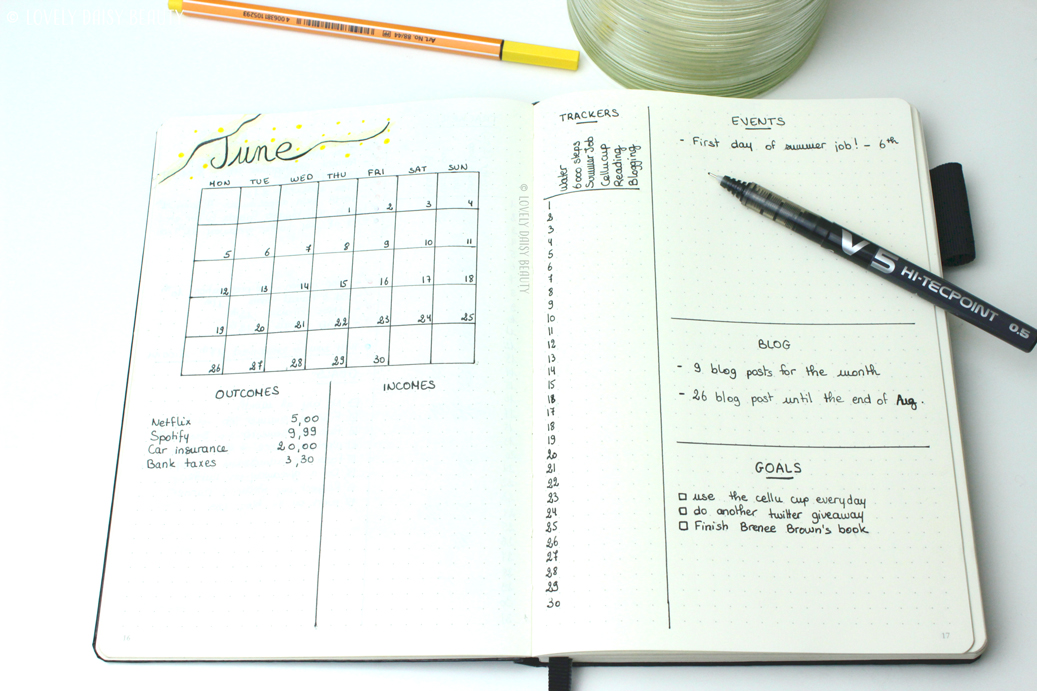 © LOVELY DAISY BEAUTY
Art. No. 88/64 4 006381 105293
June
MON TUE WED THU FRI SAT SUN
1 2 3 4
5 6 7 8 9 10 11
12 13 14 15 16 17 18
19 20 21 22 23 24 25
26 27 28 29 30
OUTCOMES
Netflix 5,00
Spotify 9,99
Car insurance 20,00
Bank taxes 3,30
INCOMES
16
© LOVELY DAISY BEAUTY
TRACKERS
Water
6000 steps
Summer Job
Cellucup
Reading
Blogging
1
2
3
4
5
6
7
8
9
10
11
12
13
14
15
16
17
18
19
20
21
22
23
24
25
26
27
28
29
30
EVENTS
- First day of summer job! - 6th
V5 HI-TECPOINT 0.5
BLOG
- 9 blog posts for the month
- 26 blog post until the end of Aug.
GOALS
use the cellu cup everyday
do another twitter giveaway
Finish Brenee Brown's book
17